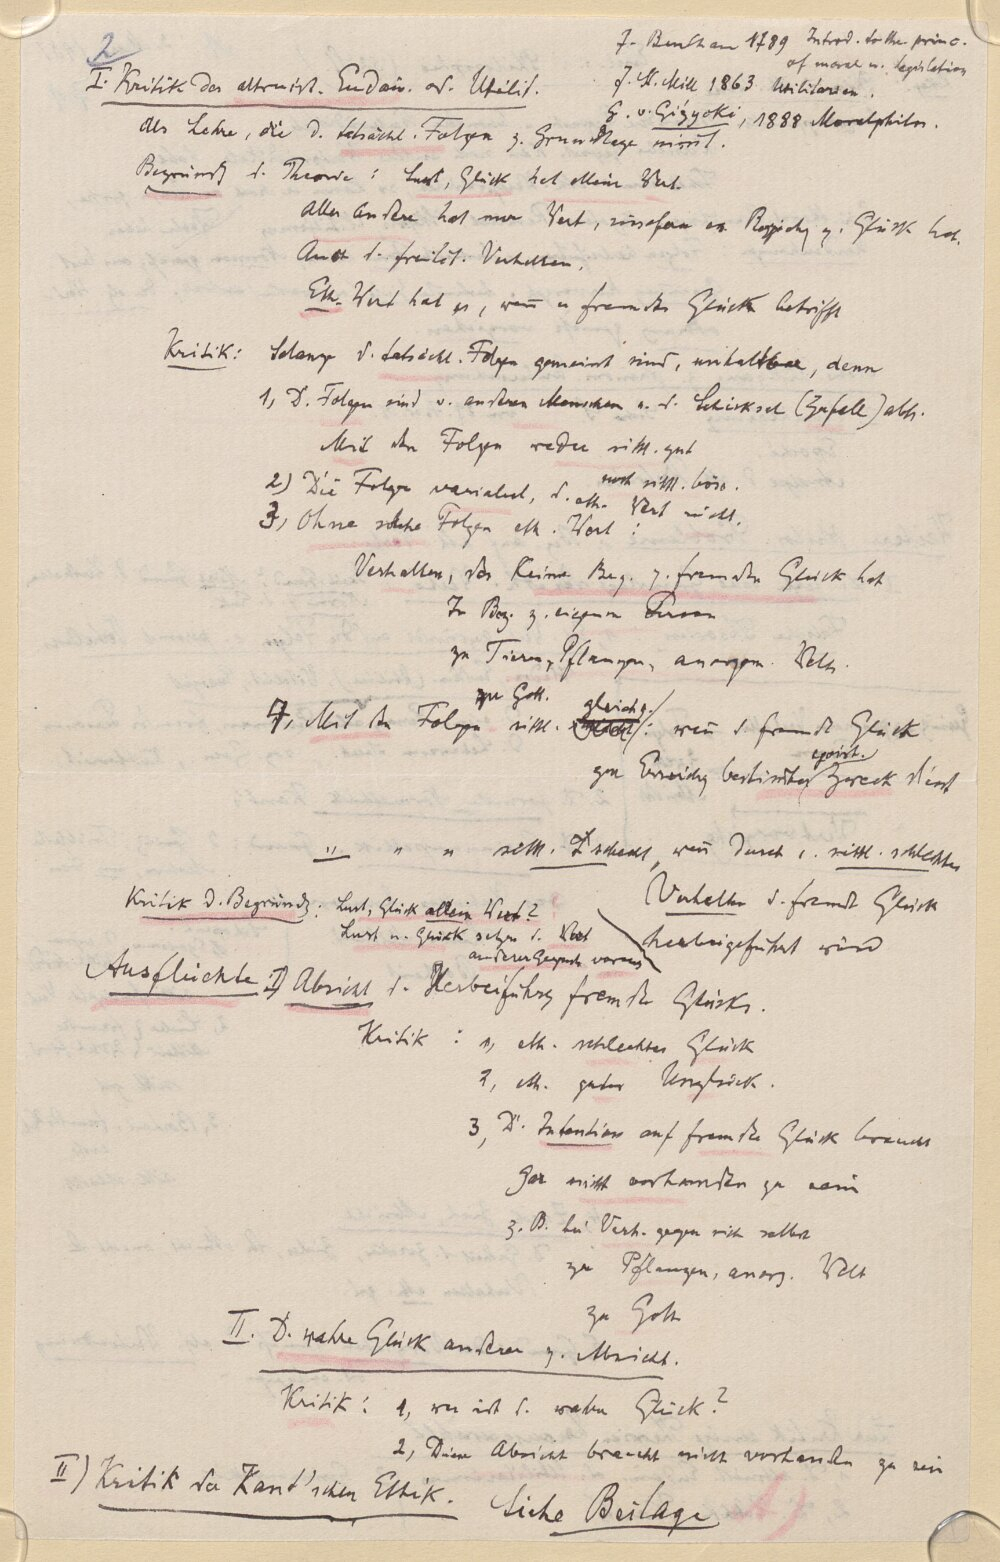 2
J. Bentham 1789 Introd. to the princ.
of moral u. legislation
J. St. Mill 1863 Utilitarism.
G. v. Gizycki, 1888 Moralphilos.
I. Kritik des altruist. Eudäm. od. Utilit.
als Lehre, die d. tatsächl. Folgen z. Grundlage nimt.
Begründg d. Theorie: Lust, Glück hat allein Wert.
Alles andere hat nur Wert, insofern es Beziehg z. Glück hat.
Auch d. Verhalten.
Eth. Wert hat es, wenn es fremdes Glück betrifft
Kritik: Solange d. tatsächl. Folgen gemeint sind, unhaltbar, denn
1, D. Folgen sind v. anderen Menschen u. d. Schicksal (Zufall) abh.
Mit den Folgen weder sittl. gut
noch sittl. böse.
2) Die Folgen variabel, d. eth. Wert nicht.
3, Ohne solche Folgen eth. Wert:
Verhalten, das keine Bez. z. fremden Glück hat
In Bez. z. eigenen Person
zu Tieren, Pflanzen, anorgan. Welt.
zu Gott.
4, Mit den Folgen sittl. gleichg.: wenn d. fremde Glück
zur Erreichg bestimter egoist. Zwecke dient
" " " sittl. schlecht, wenn durch e. sittl. schlechtes
Verhalten d. fremde Glück
herbeigeführt wird
Kritik d. Begründg: Lust, Glück allein Wert?
Lust u. Glück setzen d. Wert
anderer voraus
Ausflüchte: I) Absicht d. Herbeiführg fremden Glücks.
Kritik: 1, eth. schlechtes Glück
2, eth. gutes Unglück.
3, D. Intention auf fremdes Glück braucht
gar nicht vorhanden zu sein
z. B. bei Verh. gegen sich selbst
zu Pflanzen, anorg. Welt
zu Gott
II. D. wahre Glück anderer z. Absicht.
Kritik: 1, was ist d. wahre Glück?
2, Diese Absicht braucht nicht vorhanden zu sein
II) Kritik der Kant'schen Ethik. Siehe Beilage